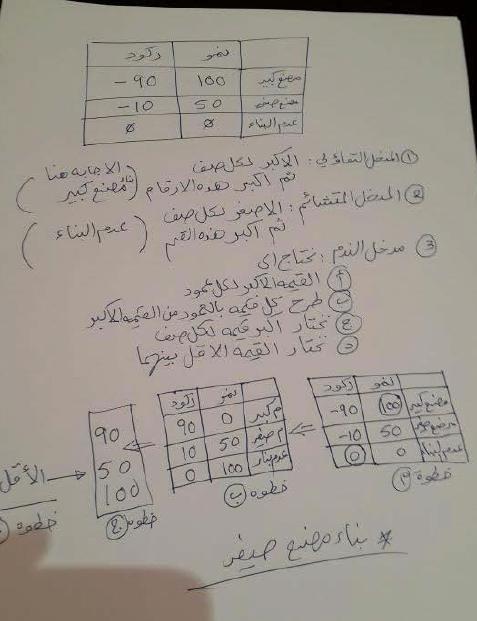 نمو ركود
مصنع كبير 100 -90
مصنع صغير 50 -10
عدم البناء ∅ ∅
① المدخل التفاؤلي: الأكبر لكل صف
ثم أكبر هذه الأرقام (الاجابه هنا مصنع كبير)
② المدخل المتشائم: الاصغر لكل صف
ثم أكبر هذه القيم (عدم البناء)
③ مدخل الندم: نحتاج الى
أ القيمه الاكبر لكل عمود
ب طرح كل قيمه بالعمود من القيمه الاكبر
ج نختار اكبر قيمه لكل صف
د نختار القيمه الاقل بينهما
نمو ركود
مصنع كبير 100 -90
مصنع صغير 50 -10
عدم البناء 0 0
خطوه أ
نمو ركود
م كبير 0 90
م صغير 50 10
عدم بناء 100 0
خطوه ب
90
50
100
خطوه ج
الأقل
خطوه
* بناء مصنع صغير